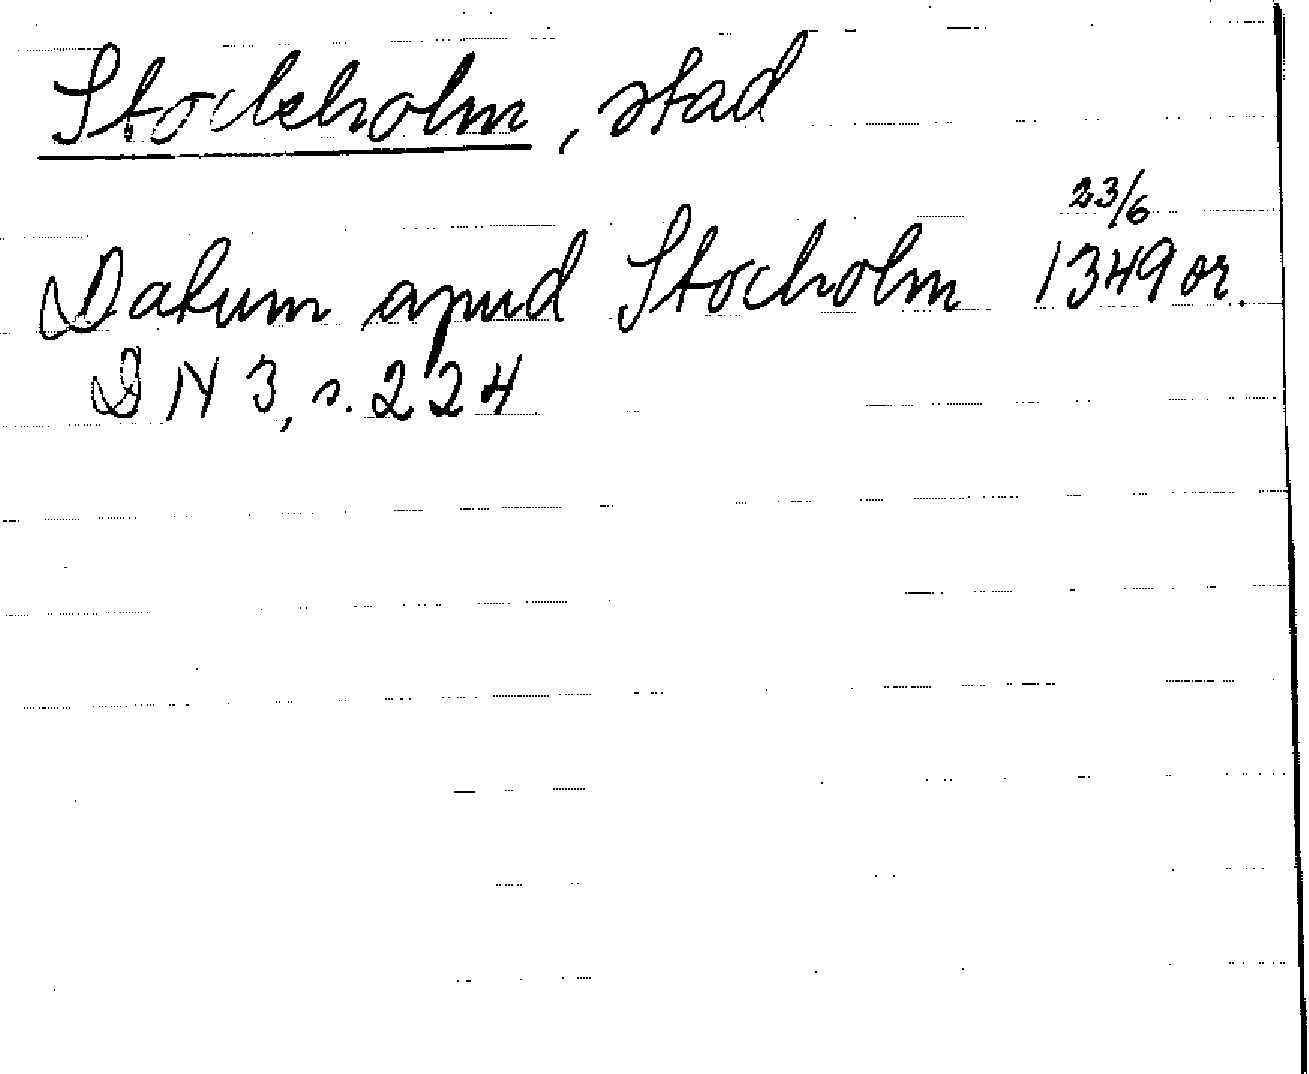 Stockholm, stad
23/6
Datum apud Stocholm 1349 or.
DN 3, s. 224